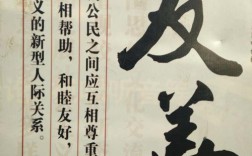 友善
公民之间应互相尊重
相帮助，和睦友好，
义的新型人际关系。